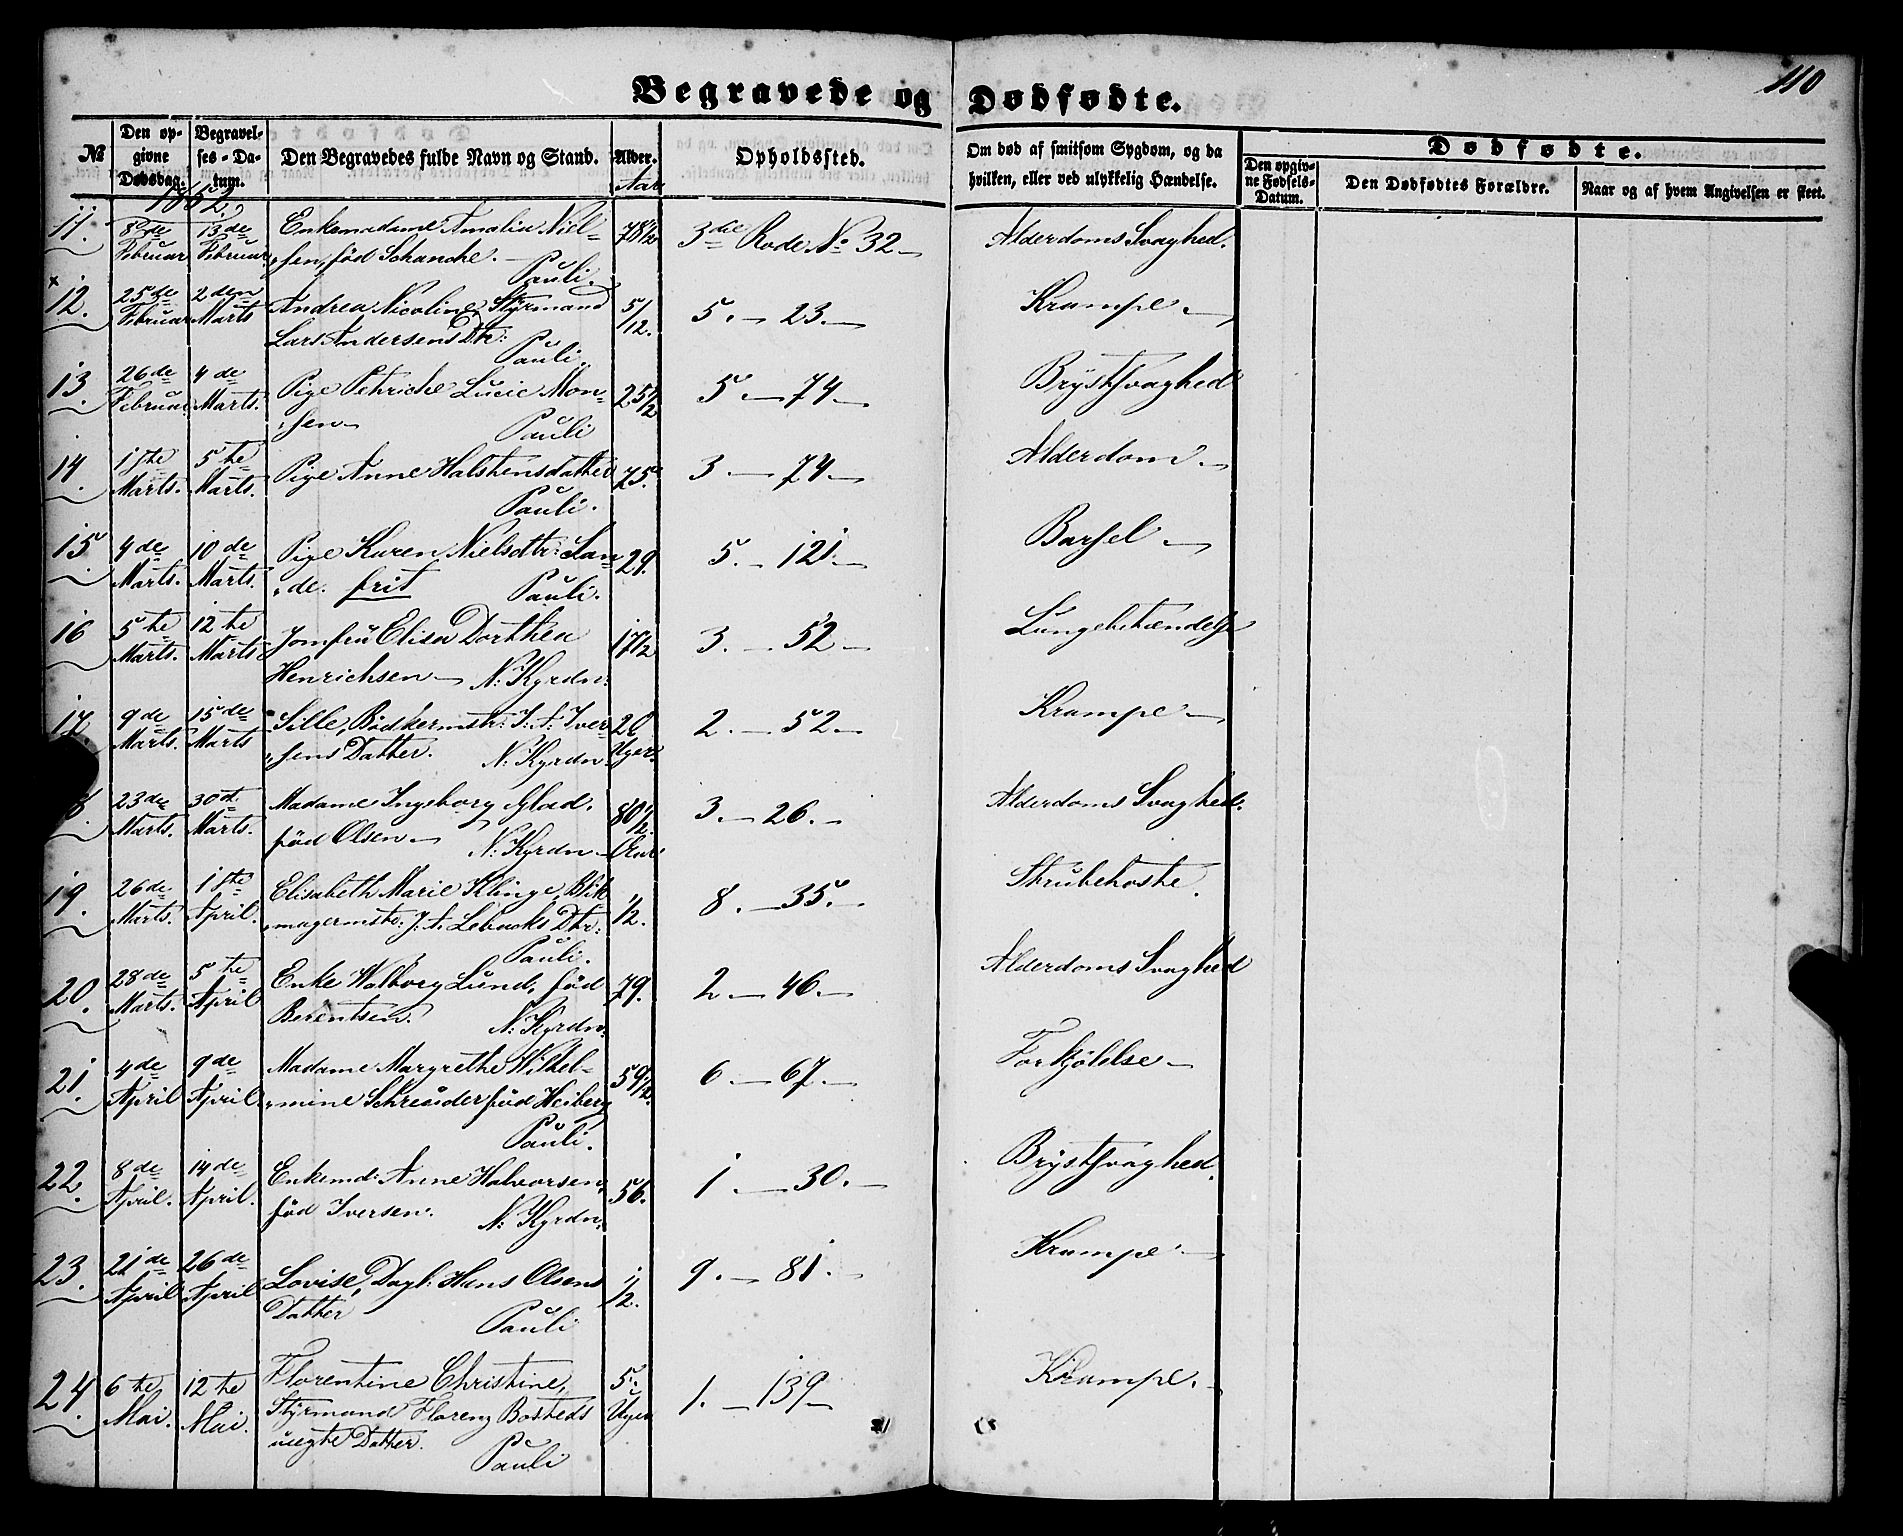 110
Begravede og Dødfødte.
№
Den opgivne Dødsdag.
Begravelses-Datum.
Den Begravedes fulde Navn og Stand.
Alder.
Aar
Opholdssted.
Om død af smitsom Sygdom, og da hvilken, eller ved ulykkelig Hændelse.
Dødfødte.
Den opgivne Fødsels-Datum.
Den Dødfødtes Forældre.
Naar og af hvem Angivelsen er skeet.
11. 8de Februar 13de Februar Enkemadame Amalia Niel- 78½ 3die Rode No 32 Alderdoms Svaghed.
sen, föd Schanche. Pauli.
12. 25de Februar 2den Marts Andrea Nicoline, Styrmand 5/12. 5. 23. Krampe
Lars Andersens Dtr: Pauli.
13. 26de Februar 4de Marts. Pige Petriche Lucie Mon- 25½ 5. 74 Brystsvaghed
sen Pauli
14. 1ste Marts. 5te Marts. Pige Anne Halstensdatter 75. 3. 74. Alderdom.
Pauli.
15. 4de Marts. 10de Marts. Pige Karen Nielsdtr: Lan- 29. 5. 121. Barsel
de. frit Pauli.
16 5te Marts. 12te Marts Jomfru Elisa Dorthea 17½ 3. 52 Lungebetændelse
Henrichsen N: Kyrdn:
17. 9de Marts. 15de Marts Sille, Bödkermstr: J: A: Iver- Uger. 2. 52. Krampe
sens Datter. N: Kyrdn
8. 23de Marts. 30te Marts. Madame Ingeborg Glad. 80½. Aar 3. 26. Alderdoms Svaghed.
föd Olsen N: Kyrdn
19. 26de Marts. 1ste April. Elisabeth Marie Klinge, Blik ½. 8. 35. Strubehoste.
magermstr: J. A. Lebacks Dtr. Pauli.
20. 28de Marts. 5te April Enke Walborg Lund, föd 79. 2. 46. Alderdoms Svaghed
Berentsen. N: Kyrdn.
21. 4de April 9de April. Madame Margrethe Wilhel- 59½. 6. 67. Forkjölelse
mine Schreuder föd Heiberg Pauli.
22. 8de April. 14de April. Enkemd: Anne Halvorsen, 56. 1. 30. Brystsvaghed.
föd Iversen. N: Kyrdn.
23. 21de April 26de April Lovise, Dagl: Hans Olsens ½. 9. 81. Krampe
Datter Pauli
24. 6te Mai. 12te Mai. Florentine Christine, 5. Uger 1. 139 Krampe.
Styrmand Florenz Bosteds
uægte Datter. Pauli